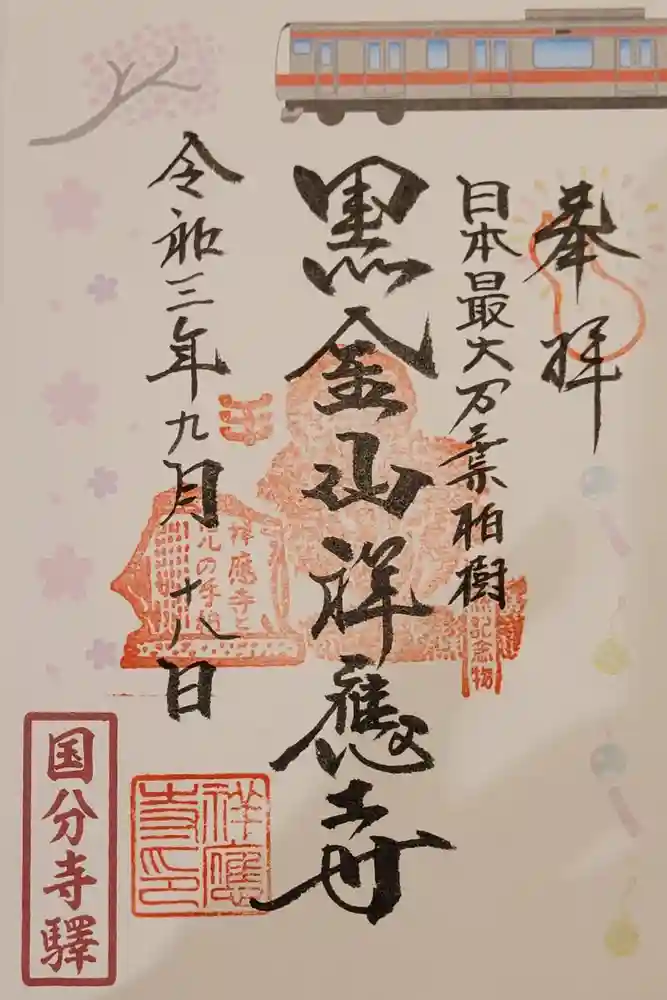 奉拝
日本最大万葉柏樹
黒金山祥應寺
令和三年九月十八日
祥應寺と
の手
記念物
祥應
寺印
国分寺驛